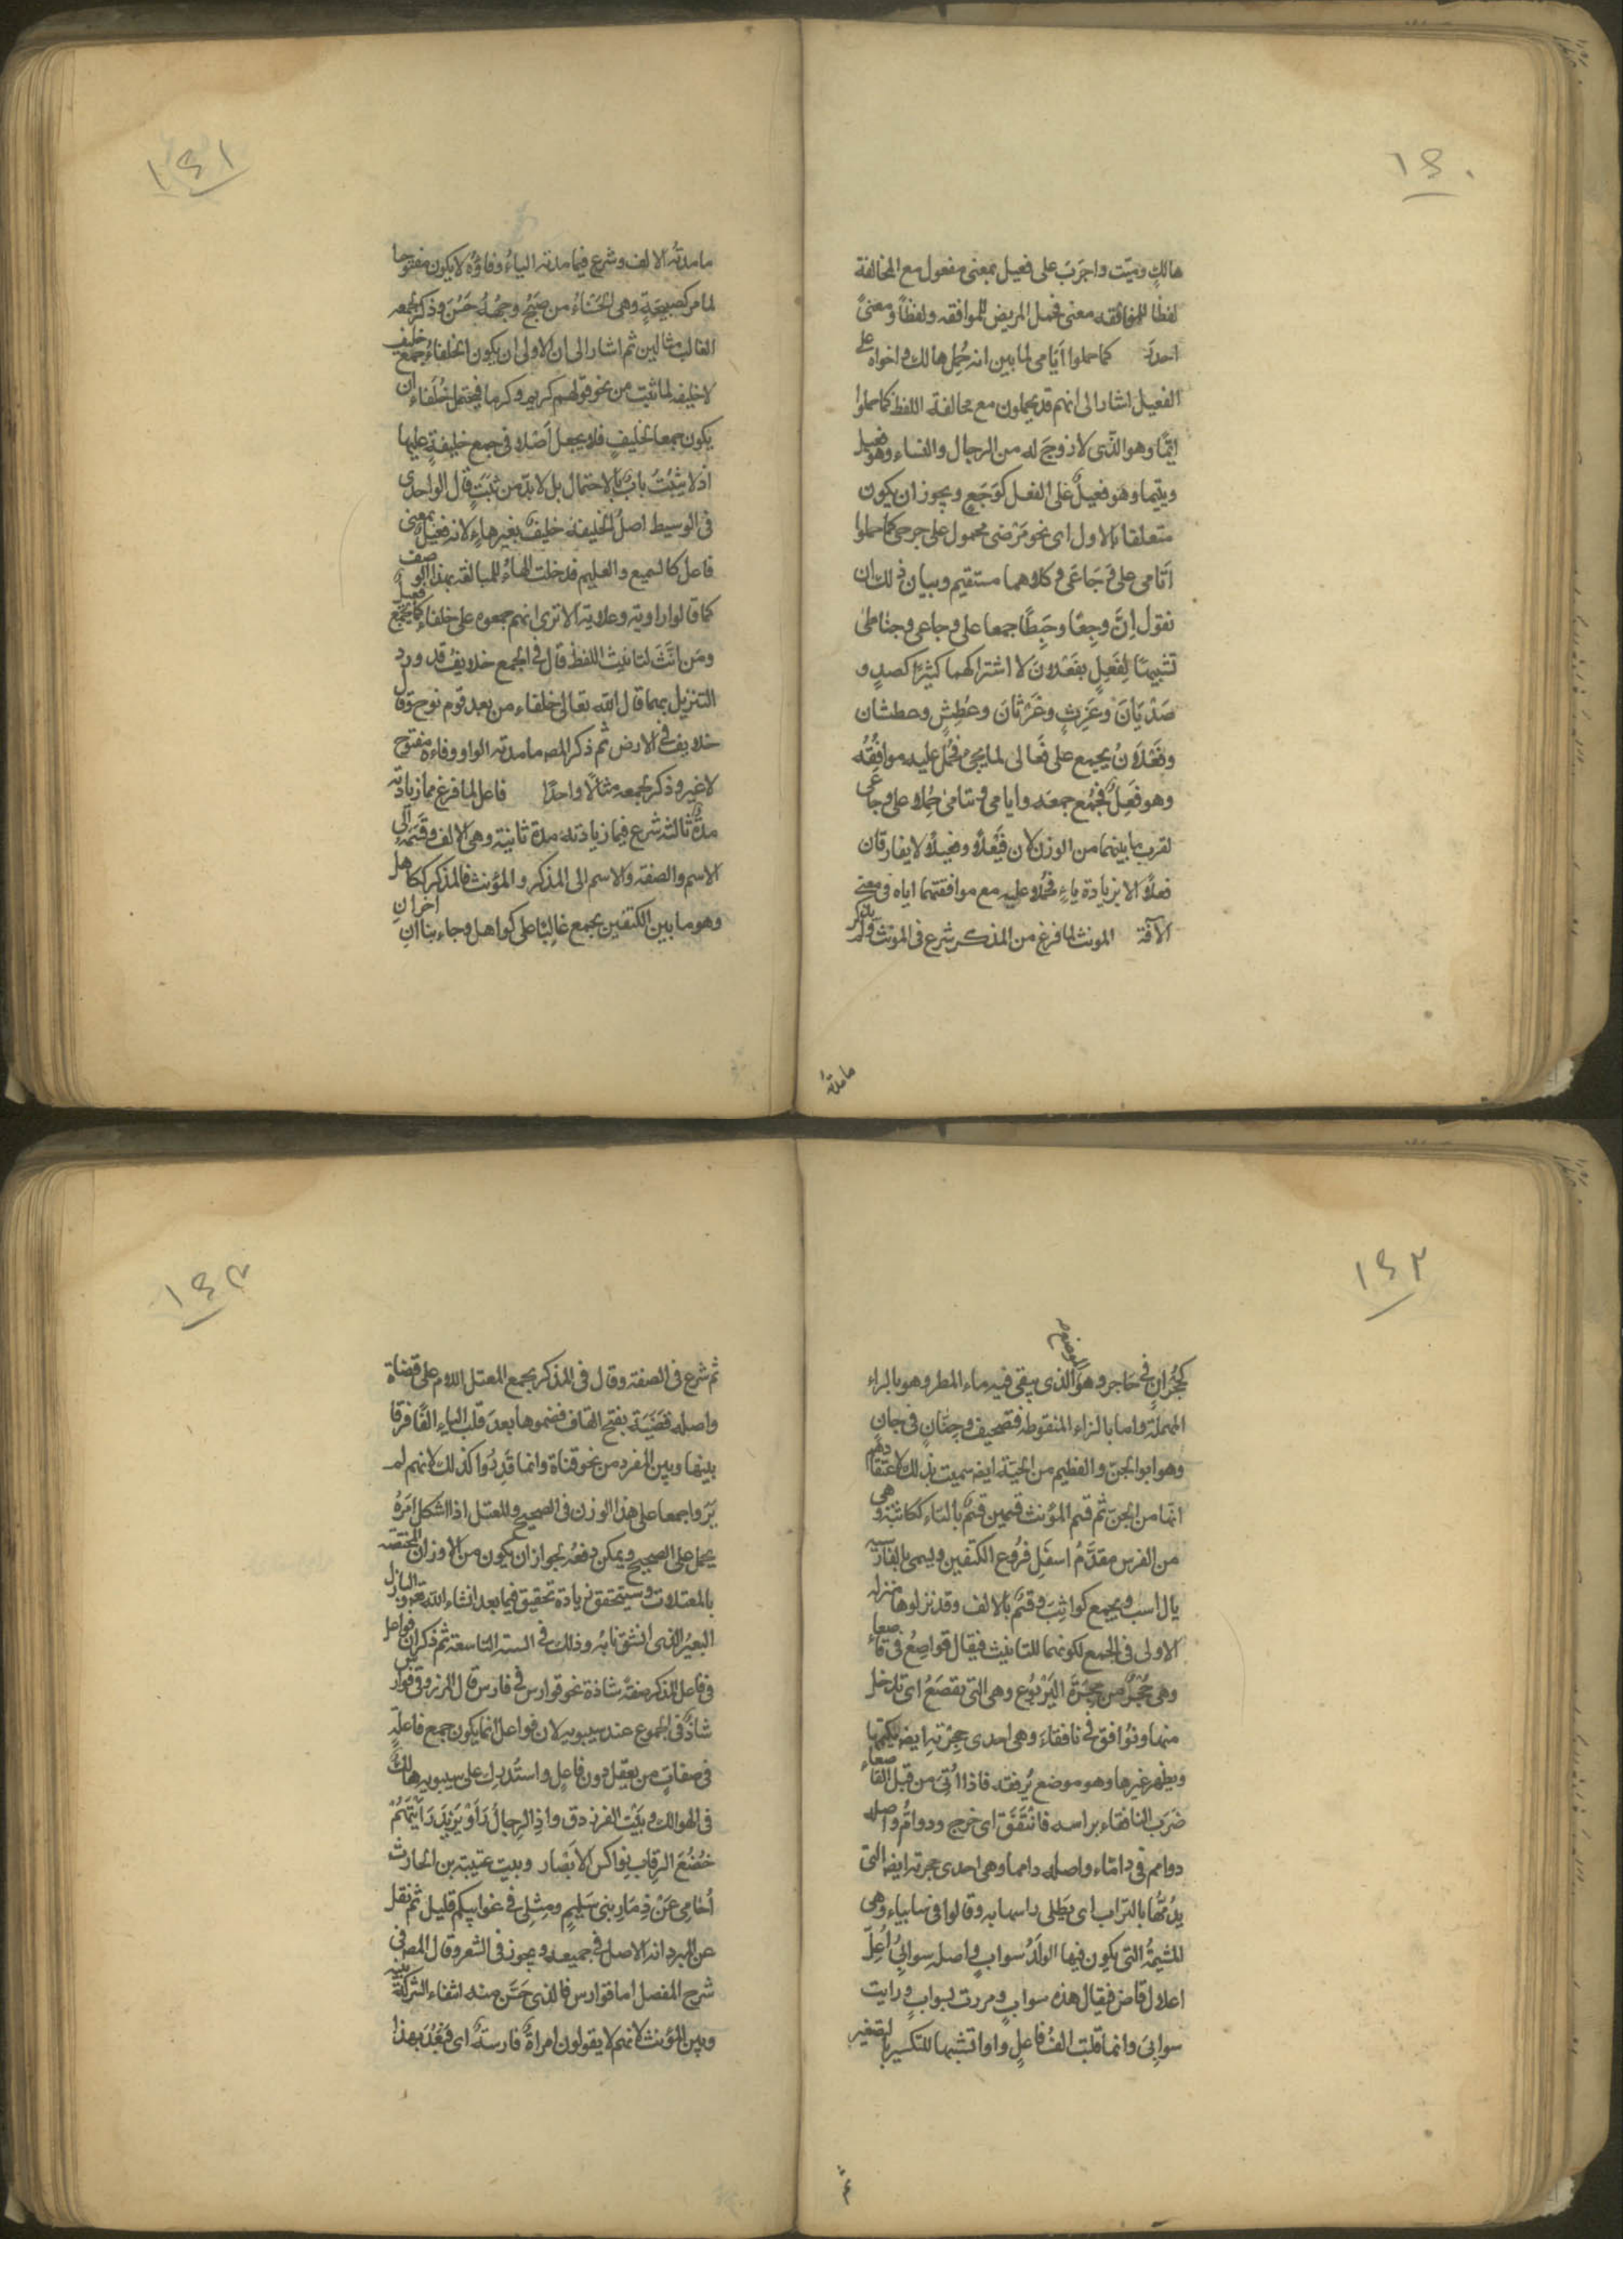 ١٤٠
هالكٍ وميّت واجرَبَ على فعيل بمعنى مفعول مع المخالفة
لفظا للموافقه معنى فحمل المريض للموافقه ولفظاً ومعنىً
احدَر كما حملوا اَيَامى لما بين انه حُمِل هالك واخواه على
الفعيل اشار الى انهم قد يحملون مع مخالفة اللفظ كما حملوا
ايّمًا وهو الذّى لا زوجَ له من الرجال والنساء وهو فعيل
ويتيما وهو فعيلٌ على الفعل كوَجَعٍ ويجوز ان يكون
متعلقا بالاول اى نحو مَرْضى محمول على جرحى كما حملوا
اَيَامى على وَجَاعَى وكلاهما مستقيم وبيان ذلك ان
نقول اِنَّ وجِعًا وحَبِطًا جمعا على وجاعى وحباطى
تشبيهًا لِفَعِلٍ بفَعْلانَ لاشتراكهما كثيرًا كصدٍ و
صَدْيَانَ وغَرِثٍ وغَرْثانَ وعُطِشٍ وعطشان
وفَعْلانُ يجمع على فَعالى لما يجئ فحُمِل عليه موافِقُهُ
وهو فَعِلٌ فجُمع جمعَه وايامى ويتامىٰ حُمِلا على وجاعَى
لقرب ما بينهما من الوزن لان فَيْعِلاً وفعيلاً لا يفارقان
فعلاً الا بزيادة ياءٍ فحُملا عليه مع موافقتهما اياه فى معنى
الآفة المونث لما فرغ من المذكر شرع فى المونث ولم يذكر
مامدتُه
١٤١
مامدتُه الالف وشرع فيما مدته الياءُ وفاؤُه لا يكون مفتوحا
لما مر كصبيحَةٍ وهى الحَسْناءُ من صَبَحَ وجهُهُ حَسُنَ وذكر لجمعه
الغالب مثالين ثم اشار الى ان الاولى ان يكون الخلفاءُ جمع خليف
لا خليفه لما ثبت من نحو قولهم كريم وكرما فيحتمل خُلَفاء ان
يكون جمعا لخليفٍ فلا يجعل اَصْلا فى جمع خليفةٍ عليها
اذ لا يثبُتُ بابٌ بالاحتمال بل لا بدّ من ثبَتٍ قال الواحدى
فى الوسيط اصلُ الخليفة خليفٌ بغيرها لانه فعيل بمعنى
فاعل كالسميع والعليم فدخلت الهاءُ للمبالغة بهذا الوصف
كما قالوا راوية وعلامة الا ترى انهم جمعوه على خلفاءَ كما يجمَع فعيل
ومَن انَّثَ لتانيث اللفظ قال فى الجمع خلايفُ قد ورد
التنزيل بهما قال الله تعالى خلفاء من بعد قوم نوح وقال
خلايف فى الارض ثم ذكر المصـ مامدته الواو وفاءه مفتوح
لا غير وذكر لجمعه مثالاً واحدًا فاعل لما فرغ مما زيادته
مدةٌ ثالثه شرع فيما زيادته مدة ثانية وهى الالف وقَسَّمَهُ الى
الاسم والصفة والاسم الى المذكر والمؤنث فالمذكر ككاهلٍ
وهو ما بين الكتفين يجمع غالبًا على كواهل وجاء بناان اخرانِ
١٤٢
كحُجْرانٍ فى حَاجِر وهو الموضع الذى يبقى فيه ماء المطر وهو بالراء
المهملة واما بالزاء المنقوطه فتصحيف وجِنّانٍ فى جانٍ
وهو ابو الجنّ والعظيم من الحيّة ايضا سميت بذلك لاعتقادهم
انها من الجنّ ثم قسم المؤنث قسمين قسمٌ بالتاء ككاثبةٍ وهى
من الفرس مقدَّمُ اسفَلِ فُروع الكتفين ويسمى بالفارسيه
يال اسب ويجمع كواثبَ وقسمٌ بالالف وقد نزلوها منزله
الاولى فى الجمع لكونهما للتانيث فيقال قواصِعُ فى قاصعاءَ
وهى جُحْرٌ من جِحَرَةَ اليَرْبُوعِ وهى التى تقصَعُ اى تدخل
منها ونُوافق فى نافقاءَ وهى احدى جحرته ايضا يكتمها
ويظهر غيرها وهو موضع يُرفقه فاذا اُتِىَ من قبل القاصعاء
ضرَبَ النافقاء براسه فانتَفَقَ اى خرج ودوامُّ واصله
دوامم فى دامّاء واصله دامما وهى احدى جحرته ايضا التى
يدمُّهَا بالتراب اى يَطْلى راسها به وقالوا فى سابياء وهى
للمشيمةُ التى يكون فيها الولَدُ سوابٍ واصله سوابىُ اُعِلّ
اعلال قاض فيقال هذه سوابٍ ومررت بسوابٍ ورايت
سوابىَ وانما قلبت الفُ فاعلٍ واوا تشبيها للتكسير بالتصغير
ثم
١٤٣
ثم شرع فى الصفة وقال فى المذكر يجمع المعتل اللام على قضاة
واصله قَضَيَة بفتح القاف فضموها بعدَ قلب الياء الفًا فرقا
بينها وبين المفرد من نحو قناة وانما قَدَّرُوا كذلك لانهم لم
يَرَوا جمعا على هذا الوزن فى الصحيح والمعتل اذا اشكل امرُهُ
يحمل على الصحيح ويمكن دفعُه لجواز ان يكون من الاوزان المختصة
بالمعتلات وسيتحقق زيادة تحقيق فيما بعد انشاء الله تعـ والبازل
البعيرُ الذى انشق نابُه وذلك فى السنة التاسعة ثم ذكر ان فواعل
فى فاعل المذكر صفةً شاذة نحو فوارس فى فارس قال المرزوقى فوارس
شاذٌ فى الجموع عند سيبويه لان فواعل انما يكون جمع فاعلةٍ
فى صفات من يعقل دون فاعلٍ واستُدرك على سيبويه هالكٌ
فى الهوالك وبَيْت الفرزدق واذا الرجالُ رَاَوْ يزيدَ رَاَيْتَهُمْ
خُضُعَ الرقاب نواكس الاَبْصَار وبيت عتيبة بن الحارث
اُحَامِى عَنْ ذِمَارِ بنى سَليمٍ ومثلى فى غوابيكم قليل ثم نقل
عن المبرد انه الاصل فى جميعه ويجوز فى الشعر وقال المصـ فى
شرح المفصل اما فوارس فالذى حَسَّن منه انتفاء الشركة بينه
وبين المؤنث لانهم لا يقولون امراةٌ فارسةٌ اى فبَعُدَ بهذا